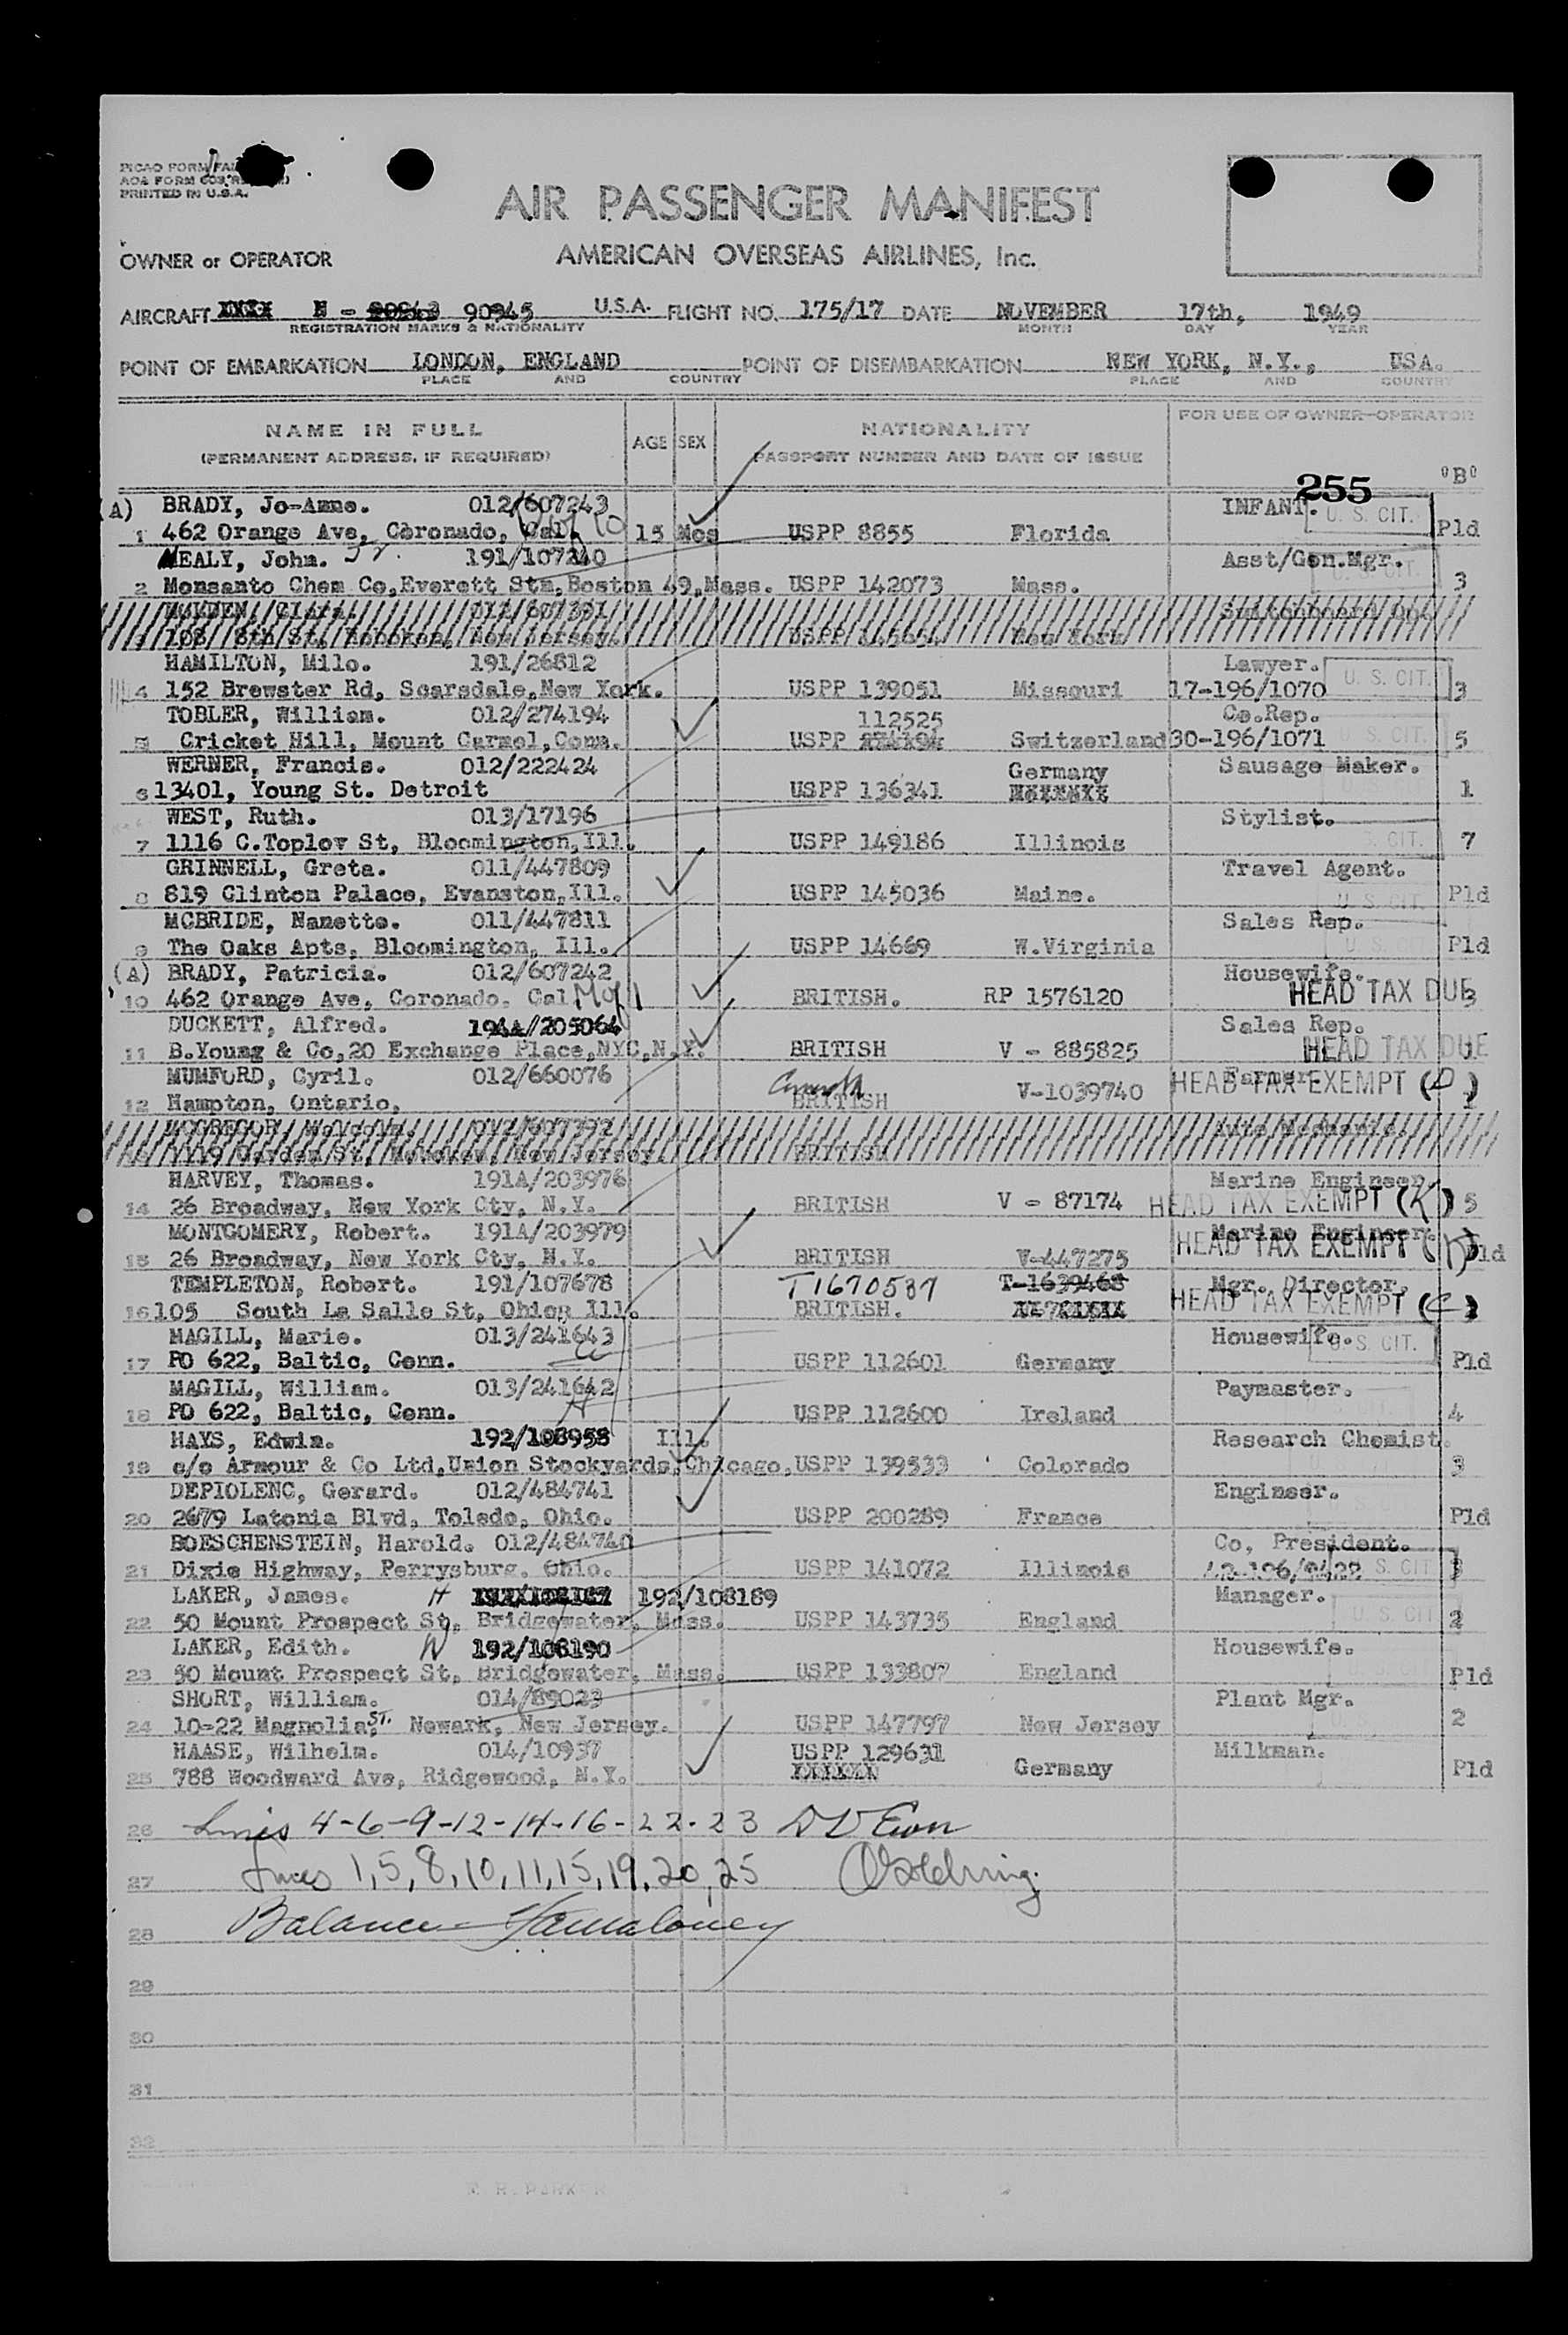 AOA FORM
PRINTED IN U.S.A.
AIR PASSENGER MANIFEST
OWNER or OPERATOR
AMERICAN OVERSEAS AIRLINES, Inc.
AIRCRAFT N - 90943 90945 U.S.A. FLIGHT NO. 175/17 DATE NOVEMBER 17th, 1949
REGISTRATION MARKS & NATIONALITY MONTH DAY YEAR
POINT OF EMBARKATION LONDON, ENGLAND POINT OF DISEMBARKATION NEW YORK, N.Y., USA.
PLACE AND COUNTRY PLACE AND COUNTRY
NAME IN FULL AGE SEX NATIONALITY FOR USE OF OWNER-OPERATOR
(PERMANENT ADDRESS, IF REQUIRED) PASSPORT NUMBER AND DATE OF ISSUE
255 "B"
(A) BRADY, Jo-Anne. 012/607243 INFANT. U. S. CIT.
1 462 Orange Ave, Coronado, Cal. 15 Mos USPP 8855 Florida Pld
NEALY, John. Jr. 191/107240 Asst/Gen.Mgr.
2 Monsanto Chem Co,Everett Stn,Boston 49,Mass. USPP 142073 Mass. U. S. CIT. 3
012/607391
108 8th St, Hoboken, New Jersey. New York
HAMILTON, Milo. 191/26812 Lawyer. U. S. CIT.
4 152 Brewster Rd, Scarsdale,New York. USPP 139051 Missouri 17-196/1070 3
TOBLER, William. 012/274194 112525 Co.Rep.
5 Cricket Hill, Mount Carmel,Conn. USPP 274194 Switzerland 30-196/1071 U. S. CIT. 5
WERNER, Francis. 012/222424 Germany Sausage Maker.
6 13401, Young St. Detroit USPP 136341 1
WEST, Ruth. 013/17196 Stylist.
7 1116 C.Toplov St, Bloomington,Ill. USPP 149186 Illinois S. CIT. 7
GRINNELL, Greta. 011/447809 Travel Agent.
8 819 Clinton Palace, Evanston,Ill. USPP 145036 Maine. U. S. CIT. Pld
MCBRIDE, Nanette. 011/447811 Sales Rep.
9 The Oaks Apts, Bloomington, Ill. USPP 14669 W.Virginia U. S. CIT Pld
(A) BRADY, Patricia. 012/607242 Housewife.
10 462 Orange Ave, Coronado, Cal. BRITISH. RP 1576120 HEAD TAX DUE 3
DUCKETT, Alfred. 194A/205064 Sales Rep.
11 B.Young & Co,20 Exchange Place,NYC,N.Y. BRITISH V - 885825 HEAD TAX DUE
MUMFORD, Cyril. 012/660076 Farmer HEAD TAX EXEMPT (D)
12 Hampton, Ontario, BRITISH V-1039740
MCGREGOR, 012/607392 Auto Mechanic.
Garden St, Hoboken, New Jersey. BRITISH
HARVEY, Thomas. 191A/203976 Marine Engineer
14 26 Broadway, New York Cty, N.Y. BRITISH V - 87174 HEAD TAX EXEMPT (K) 5
MONTGOMERY, Robert. 191A/203979 Marine Engineer.
15 26 Broadway, New York Cty, N.Y. BRITISH V-447275 HEAD TAX EXEMPT (K) Pld
TEMPLETON, Robert. 191/107678 T1670587 T-1639468 Mgr. Director.
16 105 South La Salle St, Chicg Ill. BRITISH. HEAD TAX EXEMPT (C)
MAGILL, Marie. 013/241643 Housewife. U. S. CIT.
17 PO 622, Baltic, Conn. W USPP 112601 Germany Pld
MAGILL, William. 013/241642 Paymaster.
18 PO 622, Baltic, Conn. H USPP 112600 Ireland 4
HAYS, Edwin. 192/108958 Ill. Research Chemist.
19 c/o Armour & Co Ltd,Union Stockyards,Chicago, USPP 139533 Colorado 3
DEPIOLENC, Gerard. 012/484741 Engineer.
20 2679 Latonia Blvd, Toledo, Ohio. USPP 200289 France Pld
BOESCHENSTEIN, Harold. 012/484740 Co, President.
21 Dixie Highway, Perrysburg. Ohio. USPP 141072 Illinois S. CIT
LAKER, James. H 192/108189 Manager.
22 50 Mount Prospect St, Bridgewater, Mass. USPP 143735 England U. S. CIT 2
LAKER, Edith. W 192/108190 Housewife.
23 50 Mount Prospect St, Bridgewater, Mass. USPP 133807 England Pld
SHORT, William. 014/89023 Plant Mgr.
24 10-22 Magnolia ST. Newark, New Jersey. USPP 147797 New Jersey 2
HAASE, Wilhelm. 014/10937 USPP 129631 Milkman.
25 788 Woodward Ave, Ridgewood, N.Y. Germany Pld
26 Lines 4-6-9-12-14-16-22-23
27 Lines 1,5,8,10,11,15,19,20,25
28 Balance
29
30
31
32